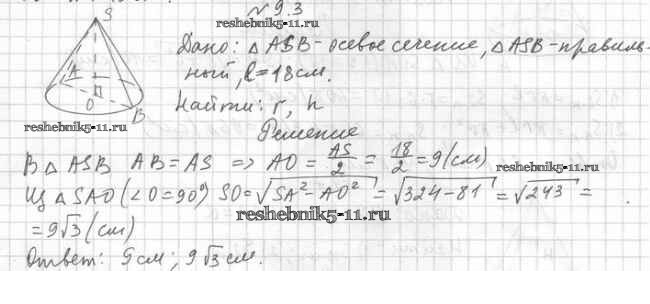 № 9.3
reshebnik5-11.ru
S
Дано: △ ASB - осевое сечение, △ ASB - правиль-
ный, l = 18 см.
A
O
B
Найти: r, h
reshebnik5-11.ru
Решение
В △ ASB AB = AS => AO = AS/2 = 18/2 = 9 (см)
reshebnik5-11.ru
Из △ SAO (∠O = 90°) SO = √(SA² - AO²) = √(324 - 81) = √243 =
reshebnik5-11.ru
= 9√3 (см)
Ответ: 9 см; 9√3 см.